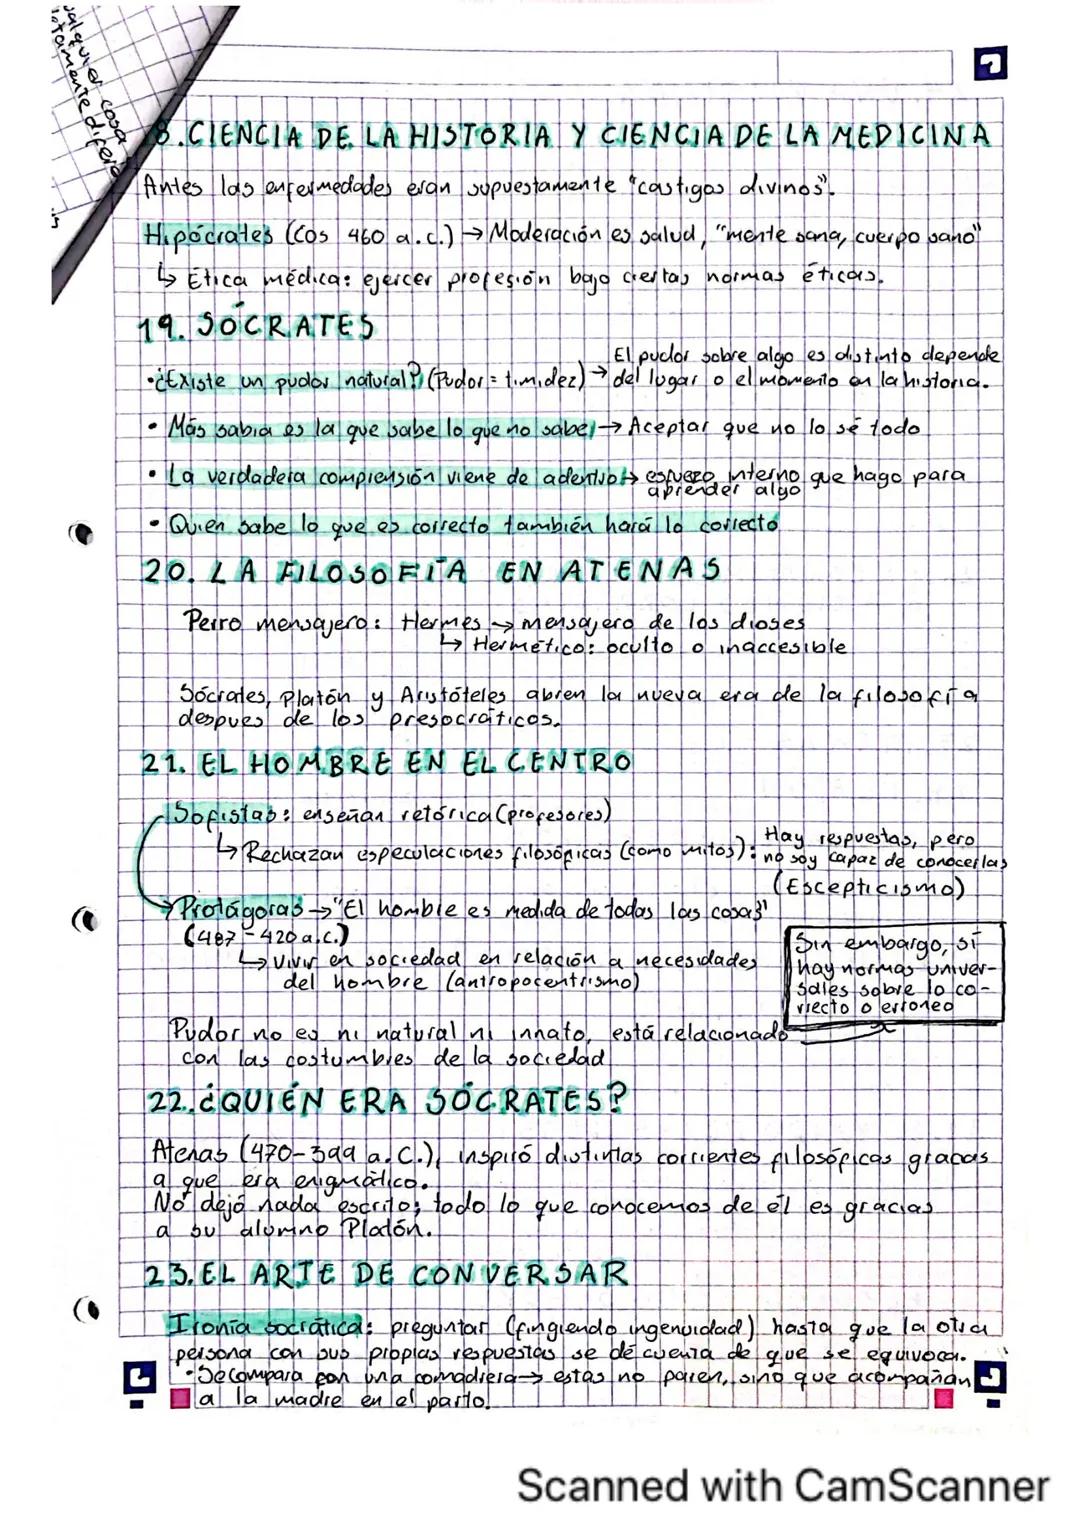 ualquier cosa
otamente difere
8. CIENCIA DE LA HISTORIA Y CIENCIA DE LA MEDICINA
Antes las enfermedades eran supuestamente "castigos divinos".
Hipócrates (Cos 460 a.c.) → Moderación es salud, "mente sana, cuerpo sano"
↳ Etica médica: ejercer profesión bajo ciertas normas éticas.
19. SÓCRATES
• ¿Existe un pudor natural? (Pudor = timidez) → El pudor sobre algo es distinto depende
del lugar o el momento en la historia.
• Más sabia es la que sabe lo que no sabe → Aceptar que no lo sé todo
• La verdadera comprensión viene de adentro → esfuerzo interno que hago para
aprender algo
• Quien sabe lo que es correcto también hará lo correcto
20. LA FILOSOFÍA EN ATENAS
Perro mensajero: Hermes → mensajero de los dioses
↳ Hermético: oculto o inaccesible
Sócrates, Platón y Aristóteles abren la nueva era de la filosofía
despues de los presocráticos.
21. EL HOMBRE EN EL CENTRO
Sofistas: enseñan retórica (profesores)
↳ Rechazan especulaciones filosóficas (como mitos): Hay respuestas, pero
no soy capaz de conocerlas
(Escepticismo)
Protágoras → "El hombre es medida de todas las cosas"
(487-420 a.c.)
↳ vivir en sociedad en relación a necesidades
del hombre (antropocentrismo)
Sin embargo, sí
hay normas univer-
sales sobre lo co-
rrecto o erroneo
Pudor no es ni natural ni innato, está relacionado
con las costumbres de la sociedad
22. ¿QUIÉN ERA SÓCRATES?
Atenas (470-399 a.C.), inspiró distintas corrientes filosóficas gracias
a que era enigmático.
No dejó nada escrito; todo lo que conocemos de él es gracias
a su alumno Platón.
23. EL ARTE DE CONVERSAR
Ironía socrática: preguntar (fingiendo ingenuidad) hasta que la otra
persona con sus propias respuestas se dé cuenta de que se equivoca.
• Se compara con una comadrera → estas no paren, sino que acompañan
a la madre en el parto.
Scanned with CamScanner